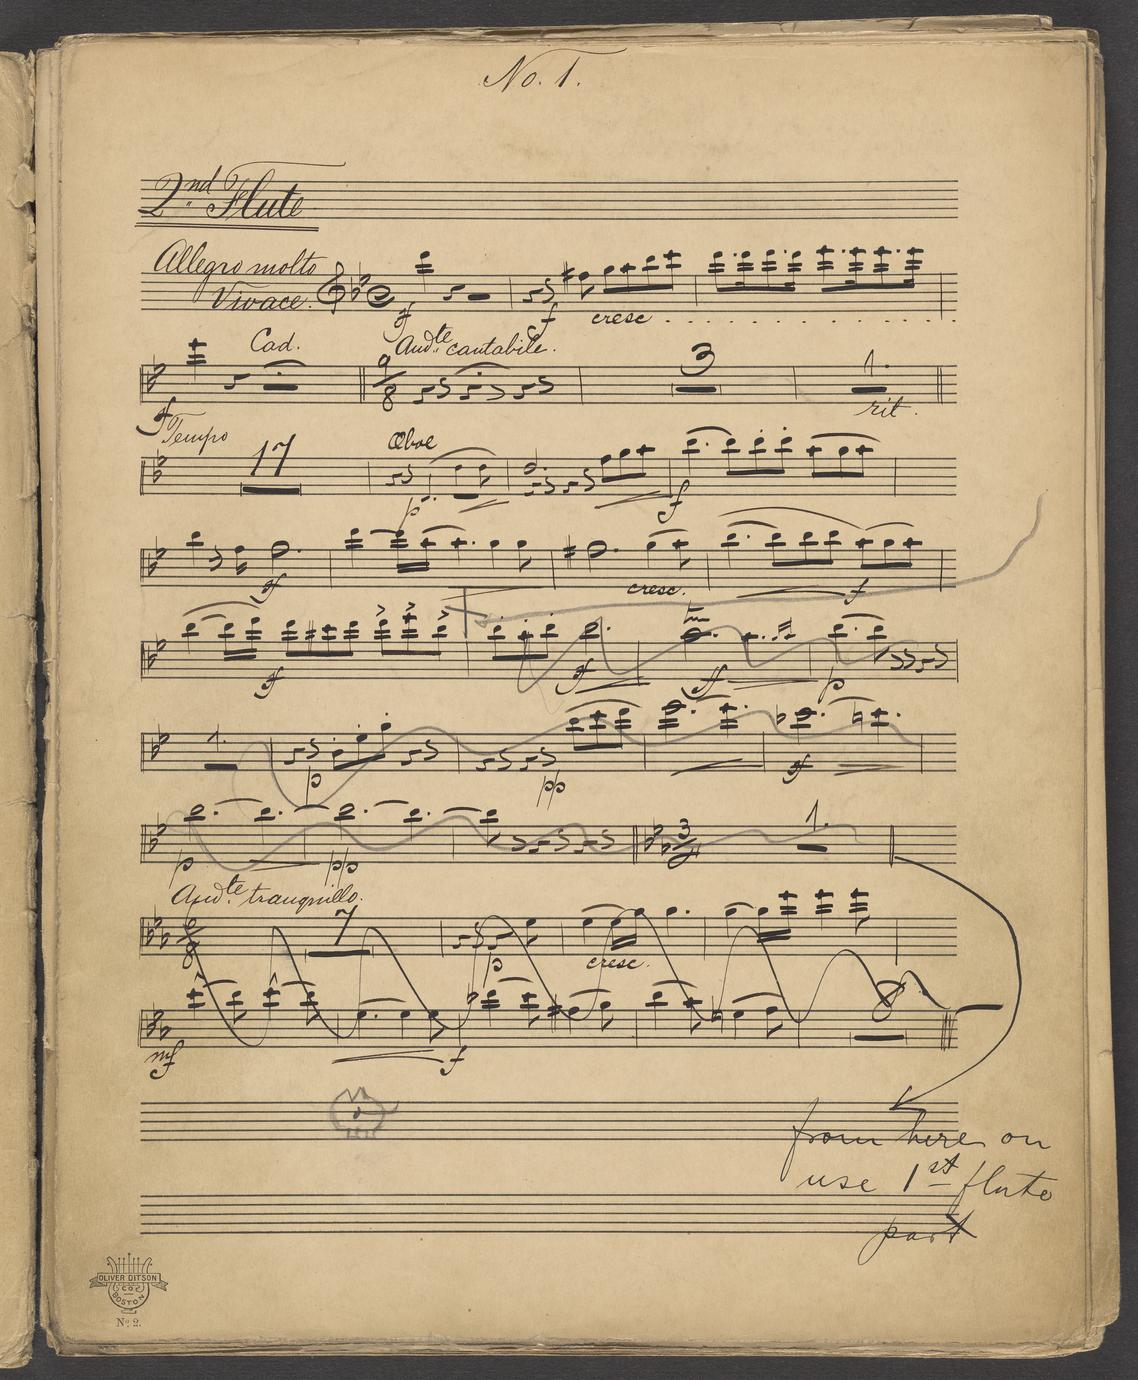 No. 1.
2nd Flute
Allegro molto
Vivace.
f
f
cresc
Cad.
Andte cantabile.
9
8
3
1.
f
rit.
Tempo
17
Oboe
p
f
sf
cresc.
f
sf
sf
tr
sf
p
1.
p
pp
sf
3
4
1.
p
pp
Andte tranquillo.
6
8
7
p
cresc.
8
mf
f
from here on
use 1st flute
part
OLIVER DITSON
CO.
BOSTON
No. 2.